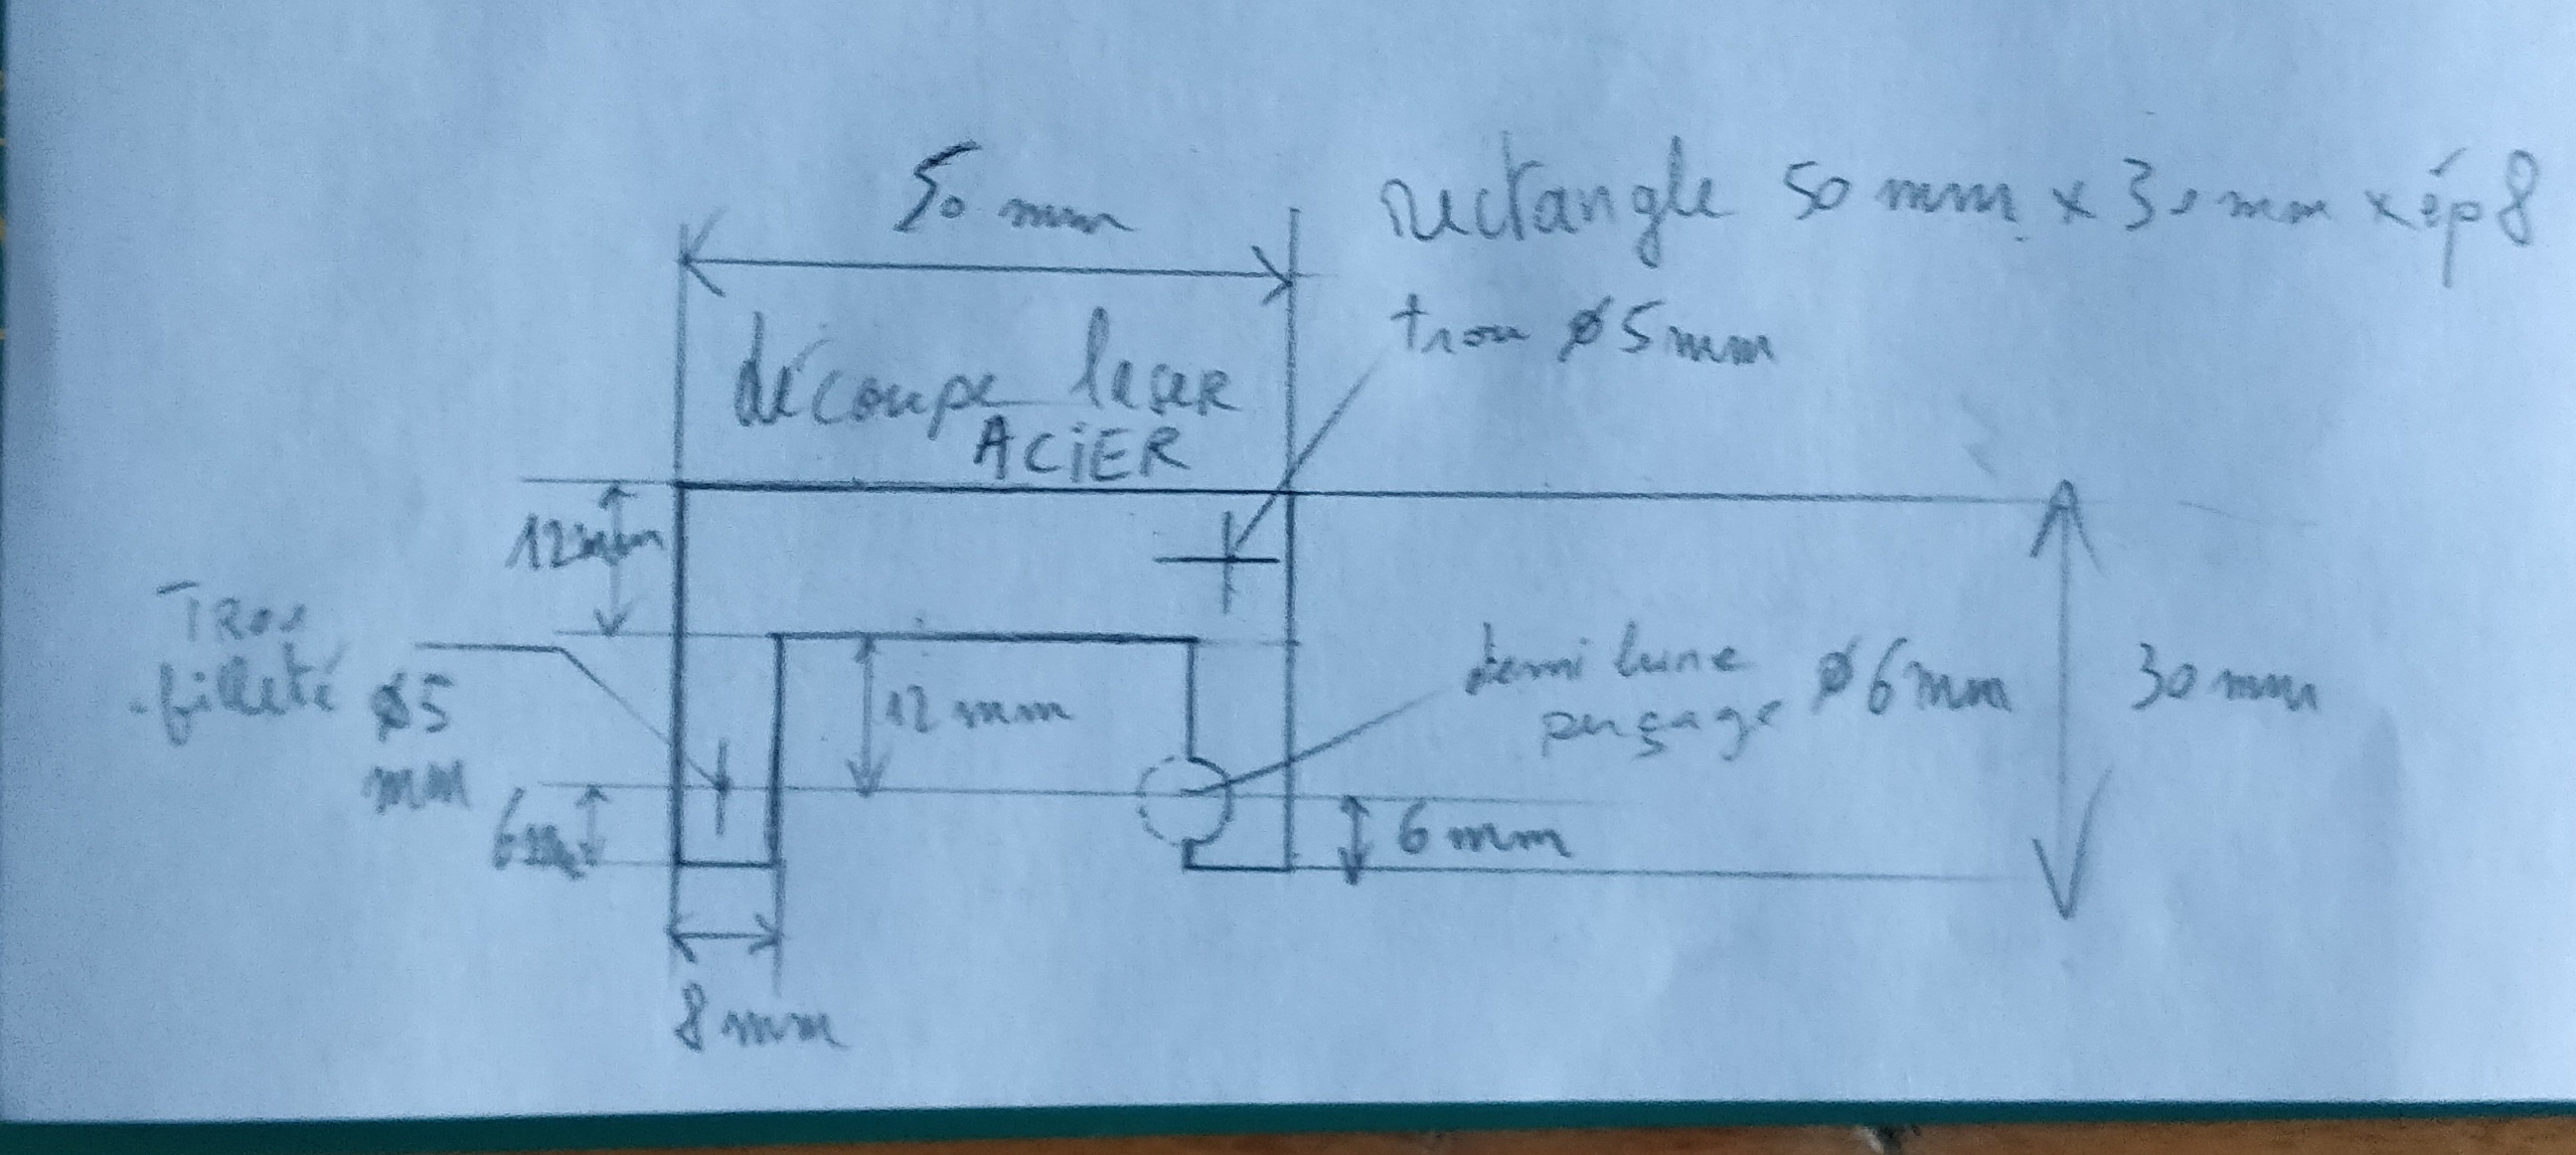 50 mm
rectangle 50 mm x 30 mm x ép 8
trou ø5mm
découpe laser
ACiER
12mm
TROU
filleté ø5
mm
12 mm
demi lune ø6mm
perçage
30 mm
6mm
6 mm
8 mm